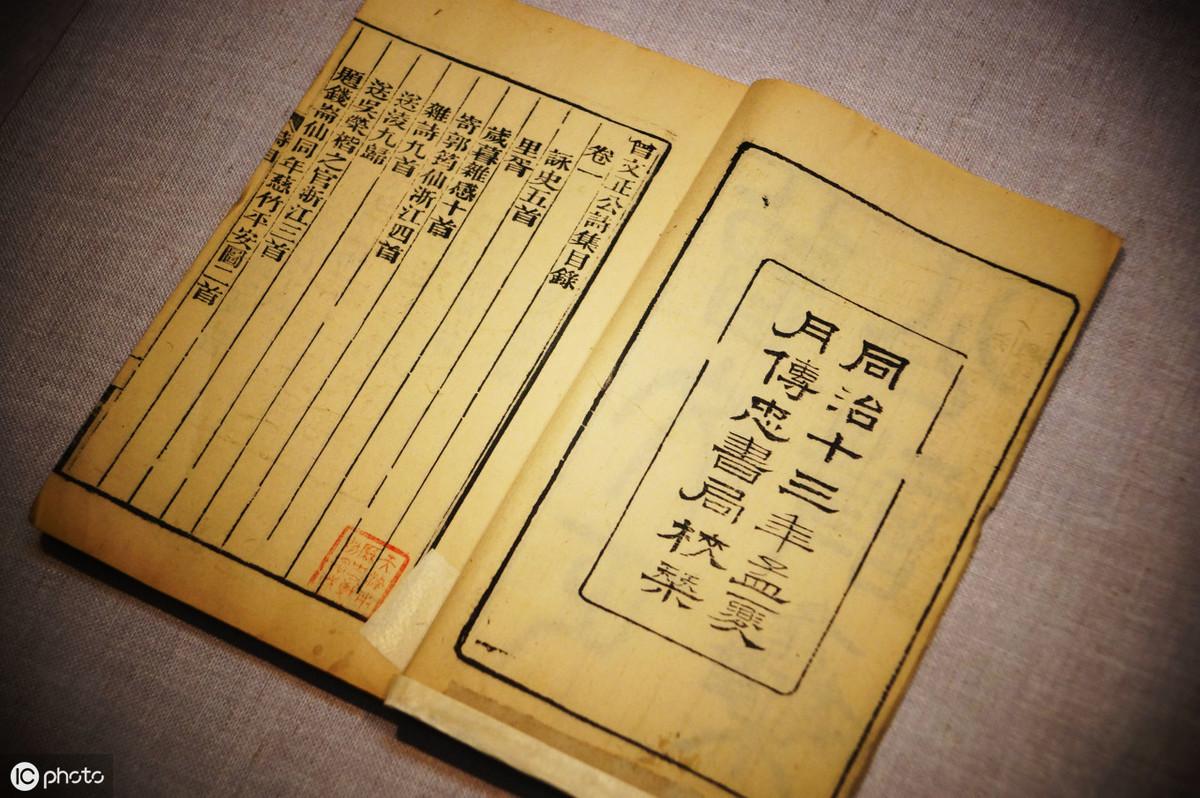 同治十三年孟夏
月傳忠書局校栞
曾文正公詩集目錄
卷一
詠史五首
里胥
歲暮雜感十首
寄郭筠仙浙江四首
雜詩九首
送凌九歸
送吳榮楷之官浙江三首
題錢崙仙同年慈竹平安圖二首
IC photo